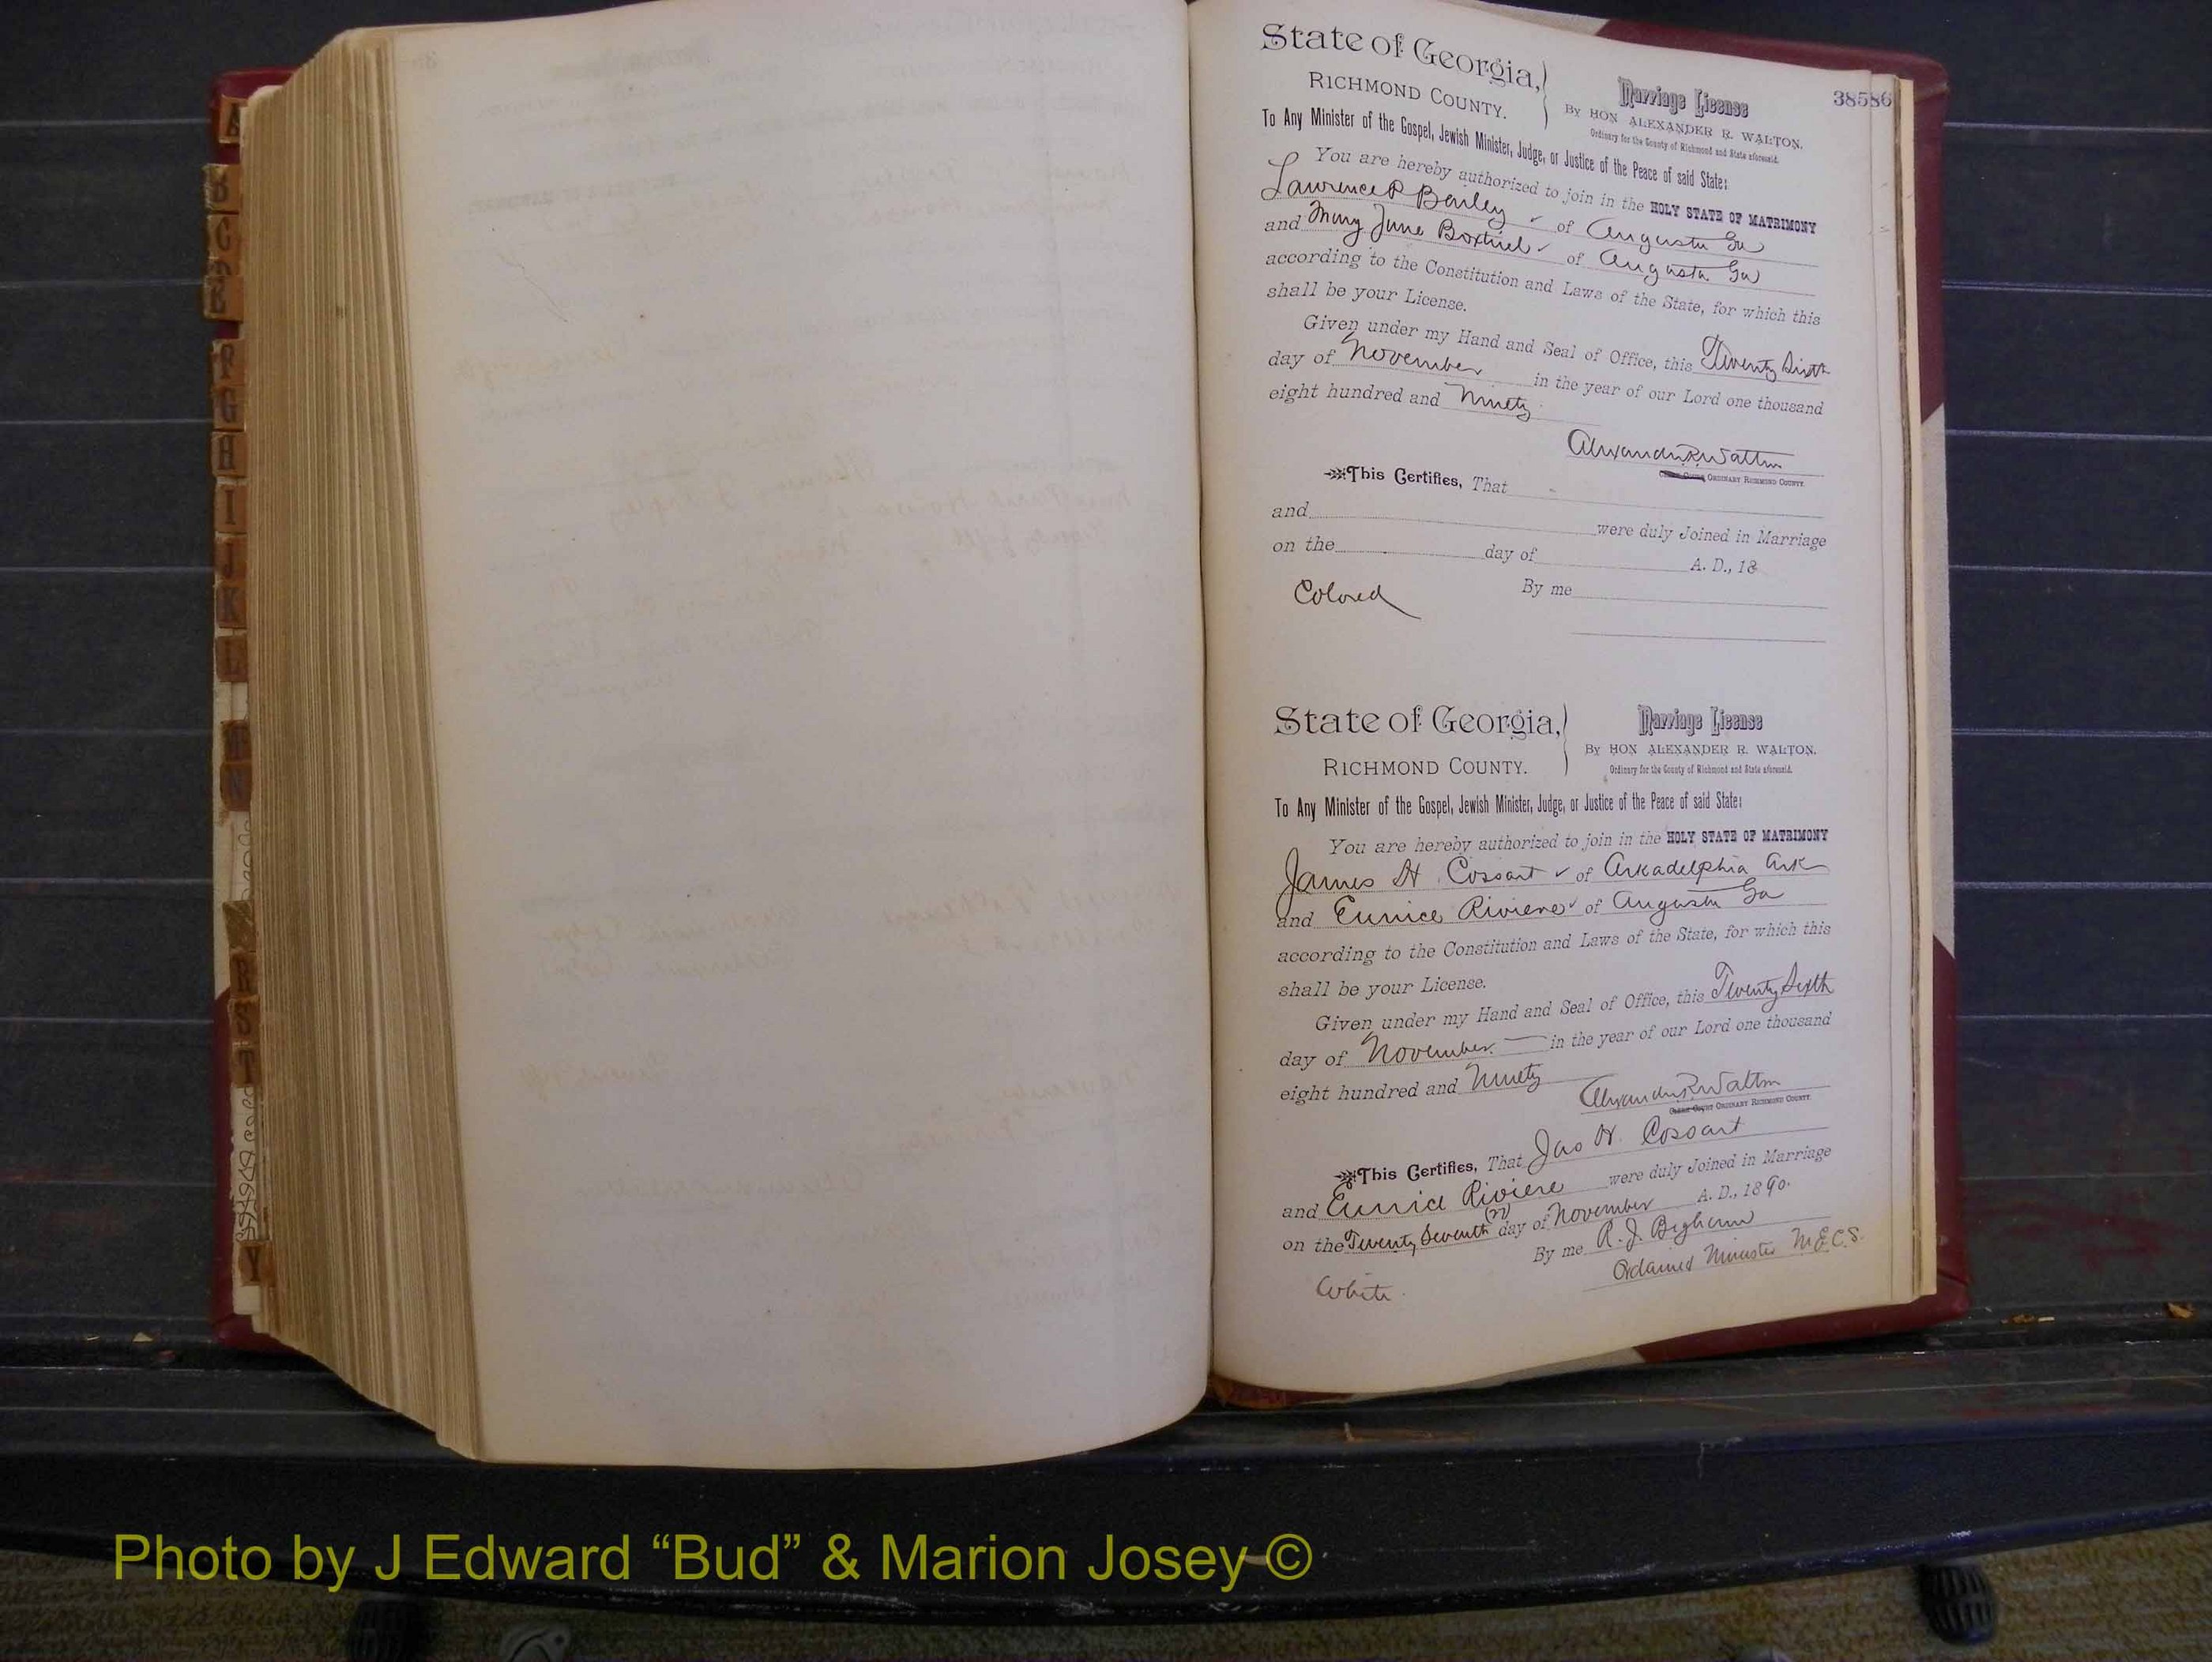 State of Georgia,
RICHMOND COUNTY.
Marriage License
38586
By HON ALEXANDER R. WALTON.
Ordinary for the County of Richmond and State aforesaid.
To Any Minister of the Gospel, Jewish Minister, Judge, or Justice of the Peace of said State:
You are hereby authorized to join in the HOLY STATE OF MATRIMONY
Lawrence P Bailey of Augusta Ga
and Mary Jane of Augusta Ga
according to the Constitution and Laws of the State, for which this
shall be your License.
Given under my Hand and Seal of Office, this Twenty Sixth
day of November in the year of our Lord one thousand
eight hundred and Ninety
Alexander R Walton
ORDINARY RICHMOND COUNTY.
This Certifies, That
and were duly Joined in Marriage
on the day of A. D., 18
By me
Colored
State of Georgia,
RICHMOND COUNTY.
Marriage License
By HON ALEXANDER R. WALTON.
Ordinary for the County of Richmond and State aforesaid.
To Any Minister of the Gospel, Jewish Minister, Judge, or Justice of the Peace of said State:
You are hereby authorized to join in the HOLY STATE OF MATRIMONY
James H Cossart of Arkadelphia Ark
and Eunice Riviere of Augusta Ga
according to the Constitution and Laws of the State, for which this
shall be your License.
Given under my Hand and Seal of Office, this Twenty Sixth
day of November in the year of our Lord one thousand
eight hundred and Ninety
Alexander R Walton
CLERK COURT ORDINARY RICHMOND COUNTY.
This Certifies, That Jas H. Cossart
and Eunice Riviere were duly Joined in Marriage
on the Twenty Seventh (27) day of November A. D., 1890.
By me R. J. Bigham
Ordained Minister M.E.C.S.
White.
B
C
F
G
H
I
J
K
L
N
R
S
T
Y
Photo by J Edward “Bud” & Marion Josey ©